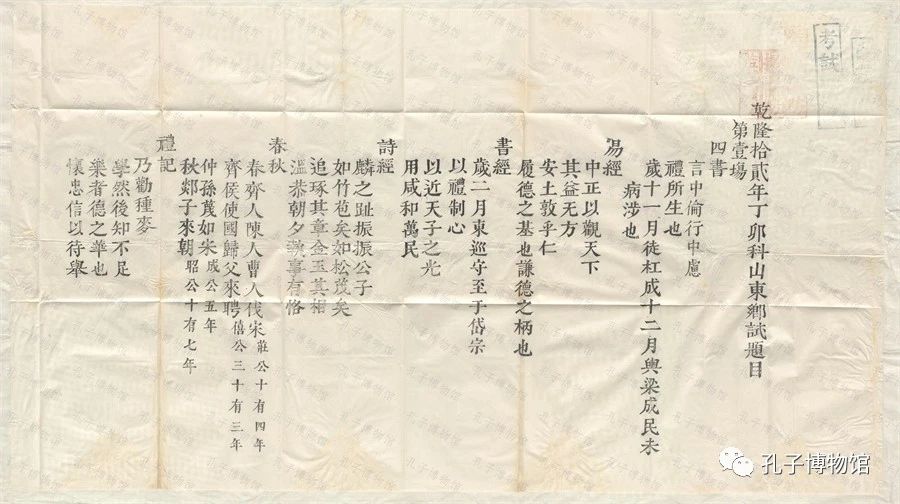 乾隆拾貳年丁卯科山東鄉試題目
第壹塲
四書
言中倫行中慮
禮所生也
歲十一月徒杠成十二月輿梁成民未
病涉也
易經
中正以觀天下
其益无方
安土敦乎仁
履德之基也謙德之柄也
書經
歲二月東巡守至于岱宗
以禮制心
以近天子之光
用咸和萬民
詩經
麟之趾振振公子
如竹苞矣如松茂矣
追琢其章金玉其相
溫恭朝夕執事有恪
春秋
春齊人陳人曹人伐宋莊公十有四年
齊侯使國歸父來聘僖公三十有三年
仲孫蔑如宋成公五年
秋郯子來朝昭公十有七年
禮記
乃勸種麥
學然後知不足
樂者德之華也
懷忠信以待舉
考試
孔子博物馆